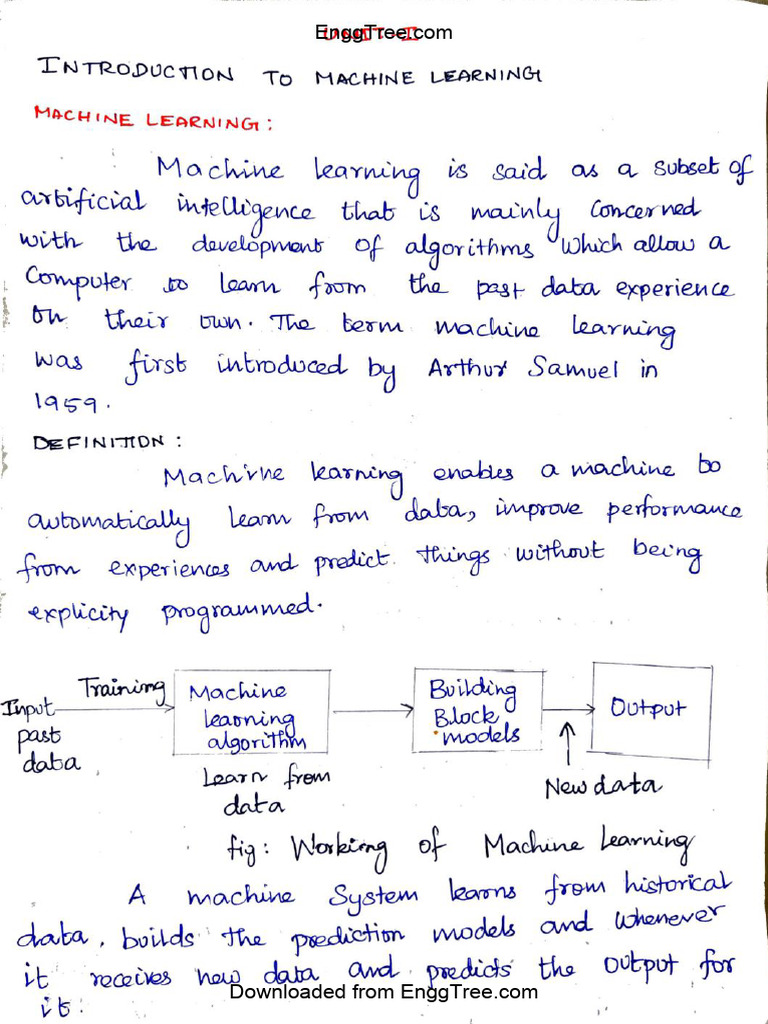 EnggTree.com
UNIT-I
INTRODUCTION TO MACHINE LEARNING
MACHINE LEARNING :
Machine learning is said as a subset of
artificial intelligence that is mainly concerned
with the development of algorithms which allow a
Computer to learn from the past data experience
on their own. The term machine learning
was first introduced by Arthur Samuel in
1959.
DEFINITION :
Machine learning enables a machine to
automatically learn from data, improve performance
from experiences and predict things without being
explicity programmed.
Input past data
Training
Machine learning algorithm
Learn from data
Building Block models
Output
New data
fig: Working of Machine Learning
A machine System learns from historical
data, builds the prediction models and whenever
it receives new data and predicts the output for
it.
Downloaded from EnggTree.com